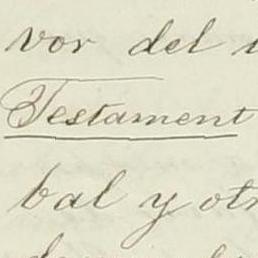 vor del
Testament
bal y otr